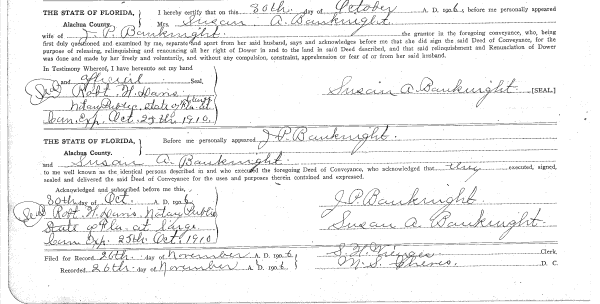 THE STATE OF FLORIDA, I hereby certify that on this 30th day of October A. D. 1906, before me personally appeared
Alachua County. Mrs. Susan A. Bauknight
wife of J. P. Bauknight. the grantor in the foregoing conveyance, who, being
first duly questioned and examined by me, separate and apart from her said husband, says and acknowledges before me that she did sign the said Deed of Conveyance, for the
purpose of releasing, relinquishing and renouncing all her right of Dower in and to the land in said Deed described, and that said relinquishment and Renunciation of Dower
was done and made by her freely and voluntarily, and without any compulsion, constraint, apprehension or fear of or from her said husband.
In Testimony Whereof, I have hereunto set my hand
and official Seal,
Seal Robt. H. Davis Susan A. Bauknight [SEAL.]
Notary Public, State of Fla. at Large
Com. Exp. Oct. 25th 1910.
THE STATE OF FLORIDA, Before me personally appeared J P Bauknight
Alachua County.
and Susan A. Bauknight
to me well known as the identical persons described in and who executed the foregoing Deed of Conveyance, who acknowledged that they executed, signed,
sealed and delivered the said Deed of Conveyance for the uses and purposes therein contained and expressed.
Acknowledged and subscribed before me this,
30th day of Oct. A. D. 1906 J. P. Bauknight
Seal Robt. H. Davis Notary Public Susan A. Bauknight
State of Fla. at Large
Com Exp. 25th Oct. 1910
Filed for Record 26th day of November A. D. 1906 Clerk.
Recorded 26th day of November A. D. 1906. D. C.